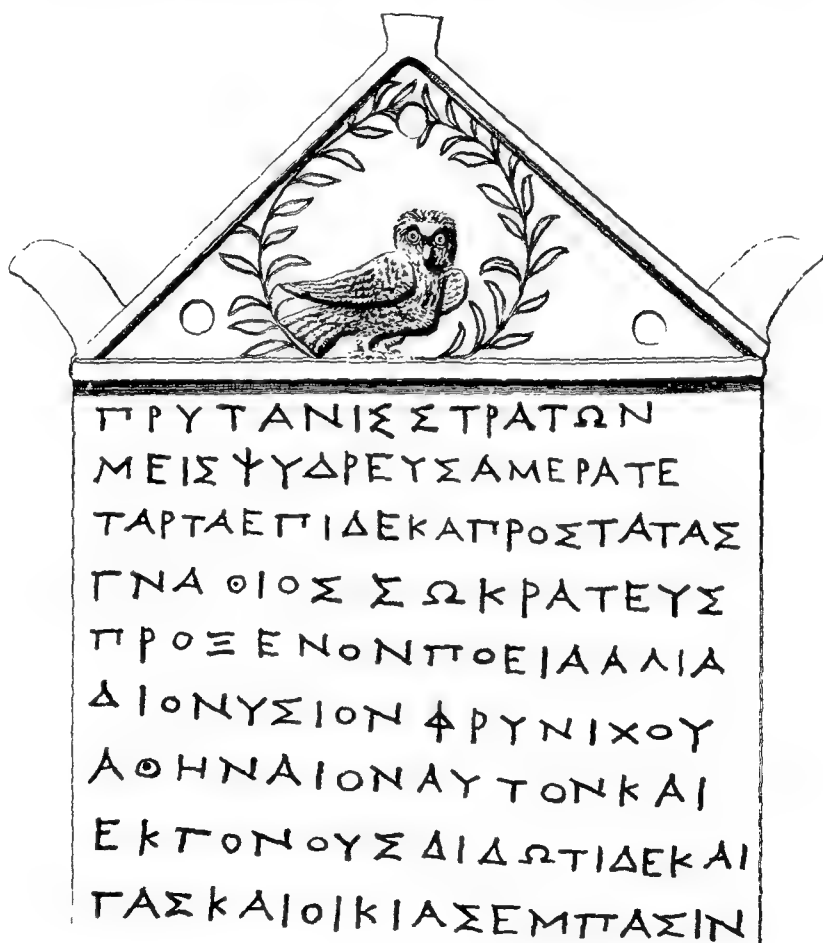 ΠΡΥΤΑΝΙΣΣΤΡΑΤΩΝ
ΜΕΙΣΨΥΔΡΕΥΣΑΜΕΡΑΤΕ
ΤΑΡΤΑΕΠΙΔΕΚΑΠΡΟΣΤΑΤΑΣ
ΓΝΑΘΙΟΣΣΩΚΡΑΤΕΥΣ
ΠΡΟΞΕΝΟΝΠΟΕΙΑΑΛΙΑ
ΔΙΟΝΥΣΙΟΝΦΡΥΝΙΧΟΥ
ΑΘΗΝΑΙΟΝΑΥΤΟΝΚΑΙ
ΕΚΓΟΝΟΥΣΔΙΔΩΤΙΔΕΚΑΙ
ΓΑΣΚΑΙΟΙΚΙΑΣΕΜΠΑΣΙΝ